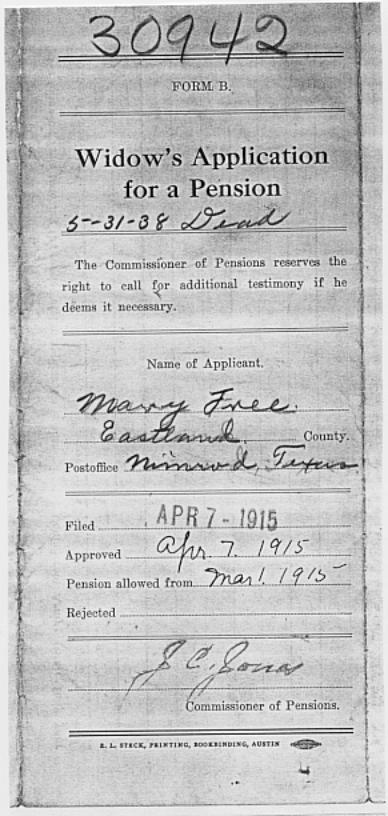 30942
FORM B.
Widow's Application
for a Pension
5-31-38 Dead
The Commissioner of Pensions reserves the
right to call for additional testimony if he
deems it necessary.
Name of Applicant.
Mary Free.
Eastland County.
Postoffice Nimrod, Texas
Filed APR 7 - 1915
Approved Apr. 7. 1915
Pension allowed from Mar 1. 1915
Rejected
J C. Jones
Commissioner of Pensions.
E. L. STECK, PRINTING, BOOKBINDING, AUSTIN